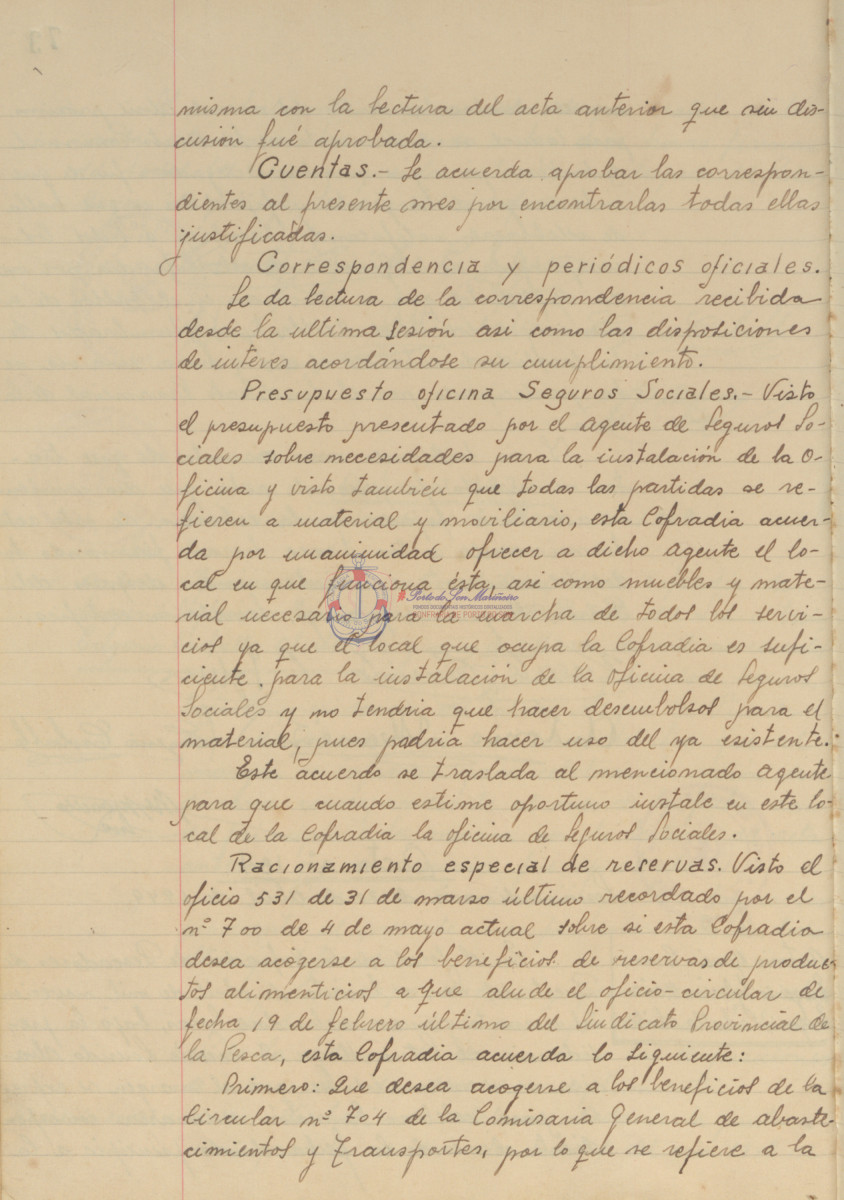 misma con la lectura del acta anterior que sin dis-
cusión fué aprobada.
Cuentas.- Se acuerda aprobar las correspon-
dientes al presente mes por encontrarlas todas ellas
justificadas.
Correspondencia y periódicos oficiales.
Se da lectura de la correspondencia recibida
desde la ultima sesión asi como las disposiciones
de interes acordándose su cumplimiento.
Presupuesto oficina Seguros Sociales.- Visto
el presupuesto presentado por el Agente de Seguros So-
ciales sobre necesidades para la instalación de la O-
ficina y visto también que todas las partidas se re-
fieren a material y moviliario, esta Cofradia acuer-
da por unanimidad ofrecer a dicho Agente el lo-
cal en que funciona ésta, asi como muebles y mate-
Porto do Son Mariñeiro
rial necesario para la marcha de todos los servi-
cios ya que el local que ocupa la Cofradia es sufi-
ciente para la instalación de la oficina de Seguros
Sociales y no tendria que hacer desembolsos para el
material, pues podria hacer uso del ya existente.
Este acuerdo se traslada al mencionado Agente
para que cuando estime oportuno instale en este lo-
cal de la Cofradia la oficina de Seguros Sociales.
Racionamiento especial de reservas. Visto el
oficio 531 de 31 de marzo último recordado por el
nº 700 de 4 de mayo actual sobre si esta Cofradia
desea acogerse a los beneficios de reservas de produc-
tos alimenticios a que alude el oficio-circular de
fecha 19 de febrero último del Sindicato Provincial de
la Pesca, esta Cofradia acuerda lo siguiente:
Primero: Que desea acogerse a los beneficios de la
Circular nº 704 de la Comisaria General de abaste-
cimientos y Transportes, por lo que se refiere a la